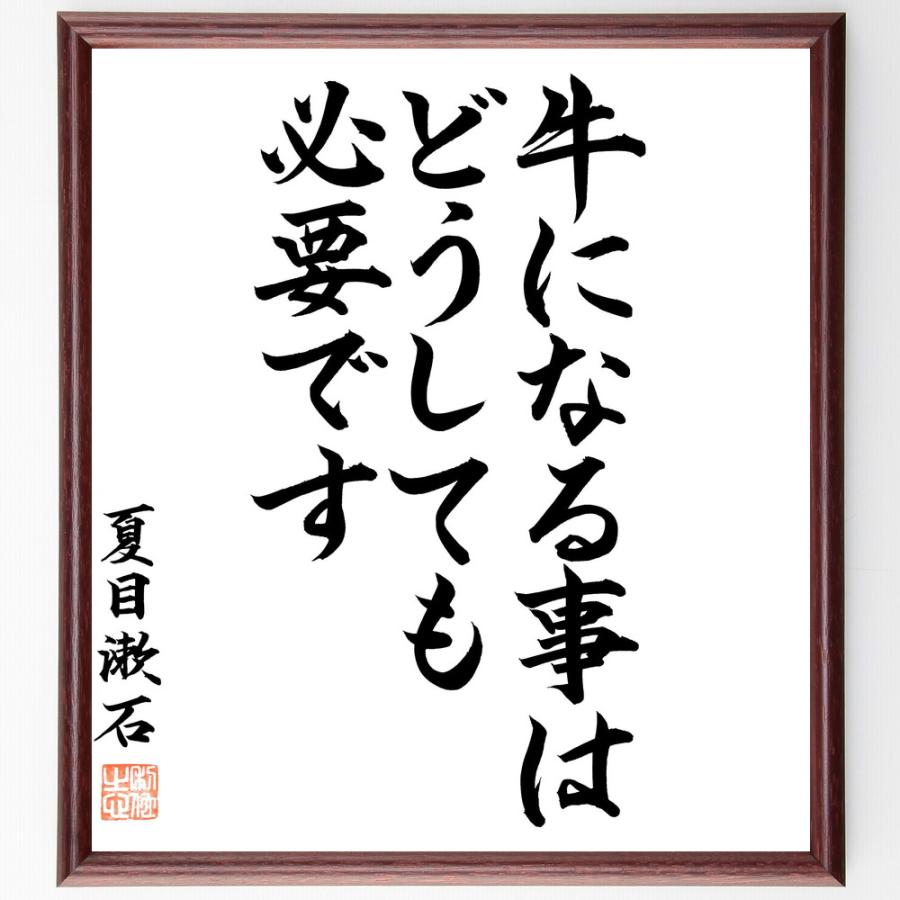 牛になる事は
どうしても
必要です
夏目漱石